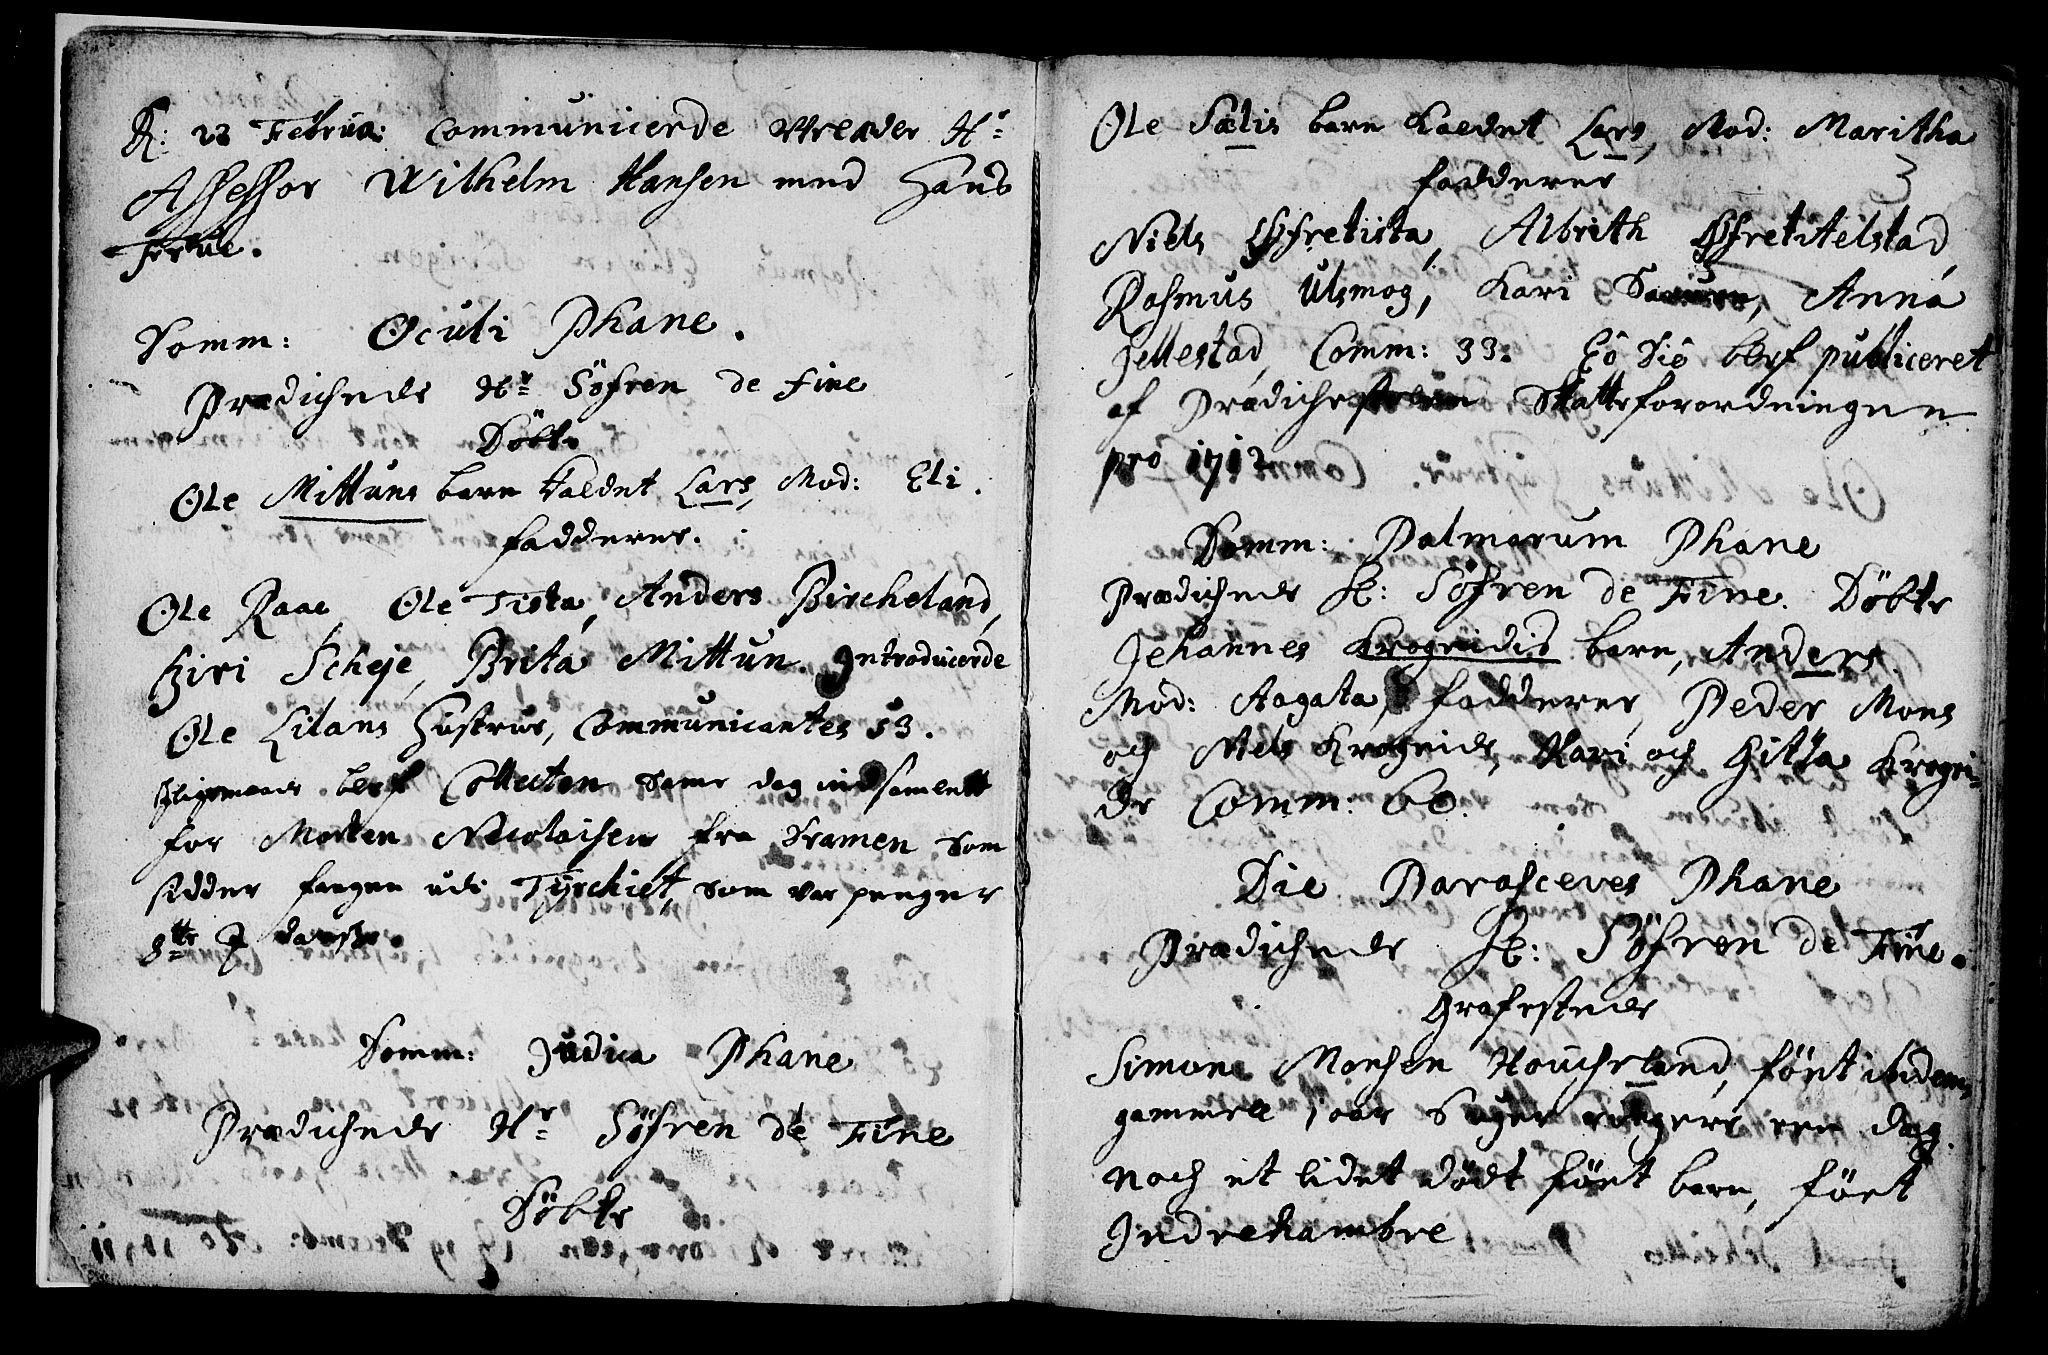 22 Februa: Communicerde Hr
Assessor Wilhelm Hansen med Hans
Frue.
Domm: Oculi Phane.
Prædichede Hr Söfren de Fine
Döbt
Ole Mittuns barn kaldet Lars, Mod: Eli.
fadderer.
Ole Raae, Ole Tista, Anders Bircheland,
Giri Scheje, Brita Mittun. Introducerde
Ole Lilans Hustrue, Communicantes 53.
blef Collecten same dag indsamlett
for Morten Nicolaisen fra som
sidder fangen udi Tyrchiet, som var penger
8tte danske.
Domm: Judica Phane
Prædichede Hr Söfren de Fine
Döbte
Ole Sælis barn kaldet Lars, Mod: Maritha
fadderer 3
Niels Öfretista, Albrith Öfretitelstad,
Rasmus Ulsmog, Kari Anna
Jellestad, Comm: 33. Eô diê blef publiceret
af Prædichestolen Skatteforordningen
pro 1712
Domm: Palmarum Phane
Prædichede H: Söfren de Fine. Döbte
Jehannes Krogeidis barn, Anders.
Mod: Aagata, fadderer, Peder, Mons
och Niels Krogeide, Kari och Gitta Krogei-
de Comm: 60.
Die Parasceves Phane
Prædichede H: Söfren de Fine.
Grafestede
Simone Monsen Houcheland, föet indem,
gammell 1 aar uger ringere een dag.
noch et lidet dödt föet barn, föet
Indrehambre